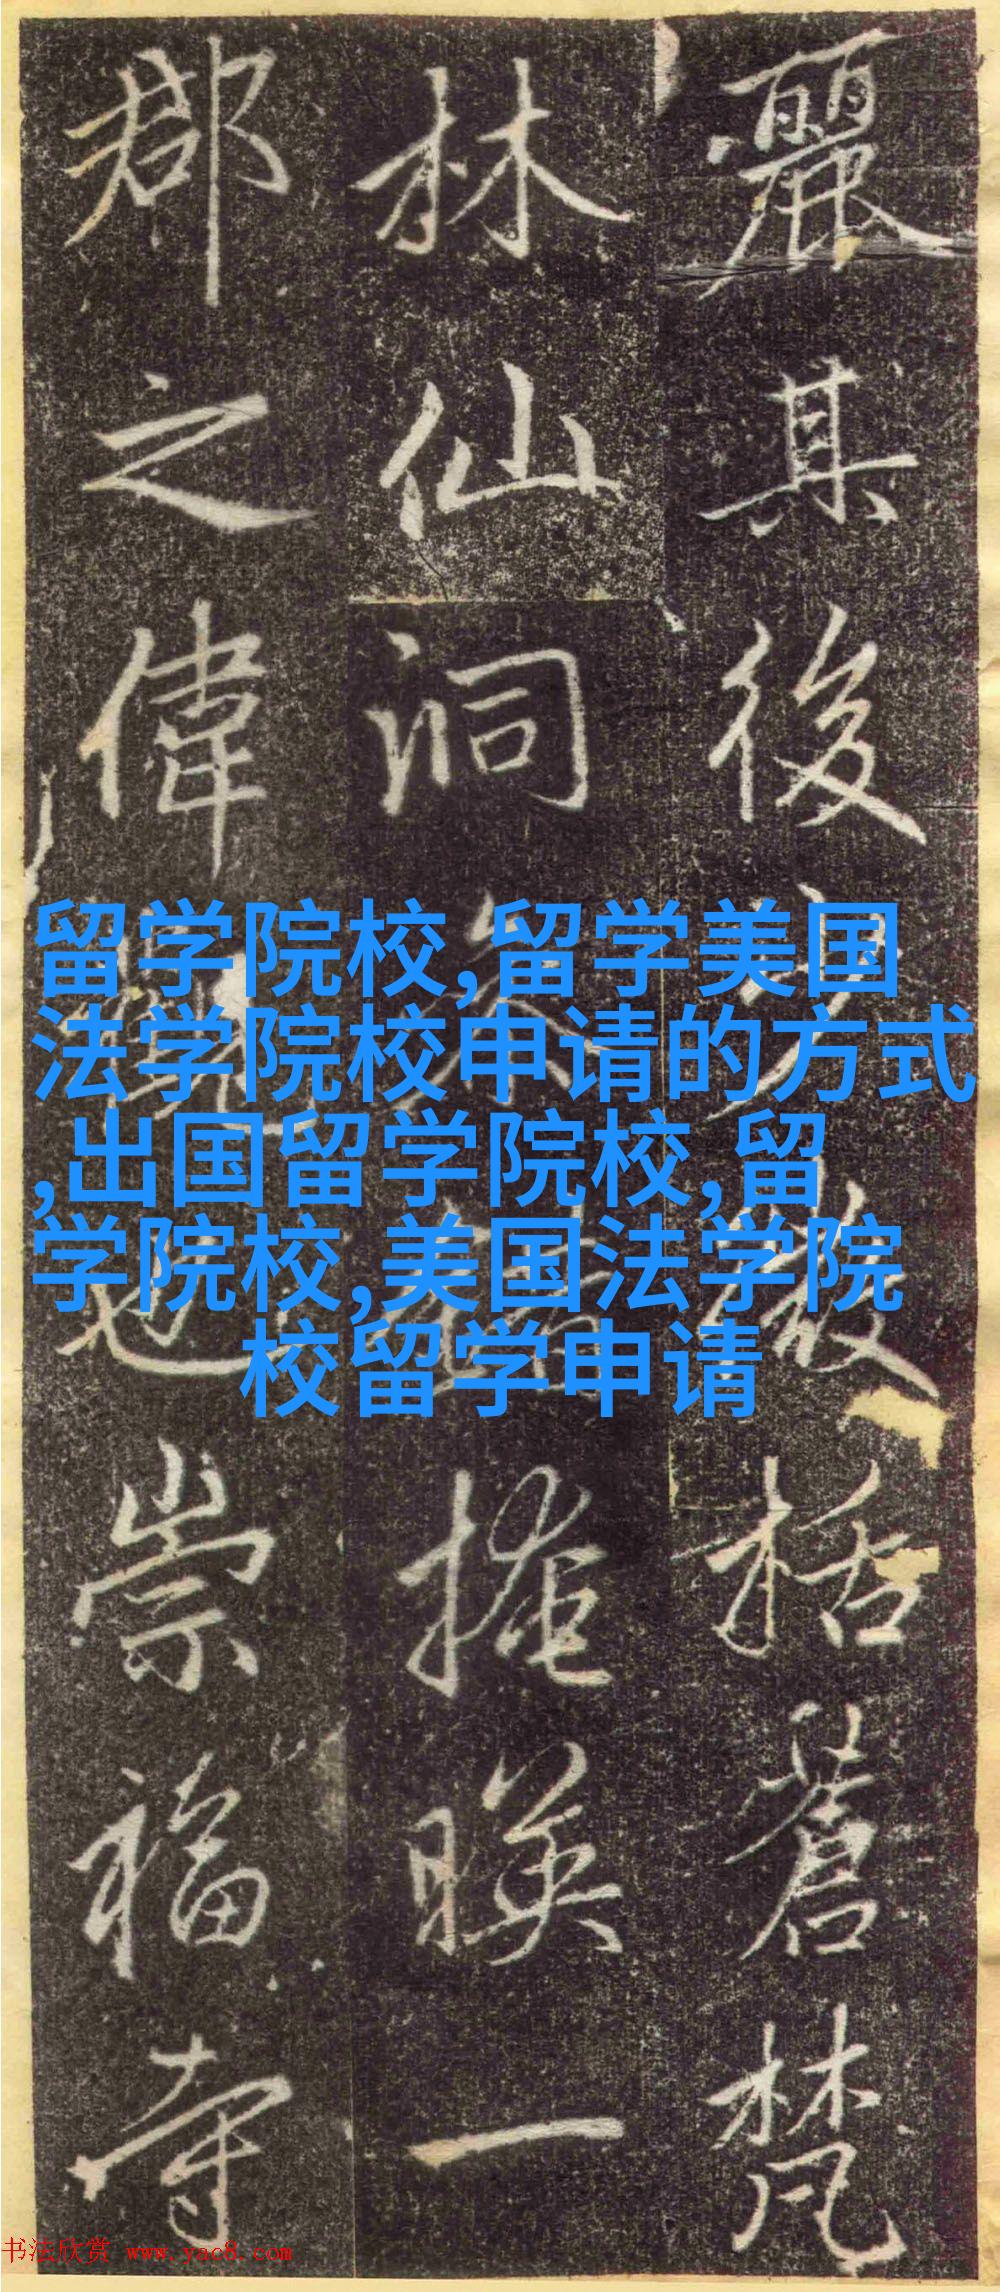 麗其後括蒼梵
林仙洞掩暎一
郡之偉也崇福寺
留学院校,留学美国
法学院校申请的方式
,出国留学院校,留
学院校,美国法学院
校留学申请
书法欣赏 www.yac8.com